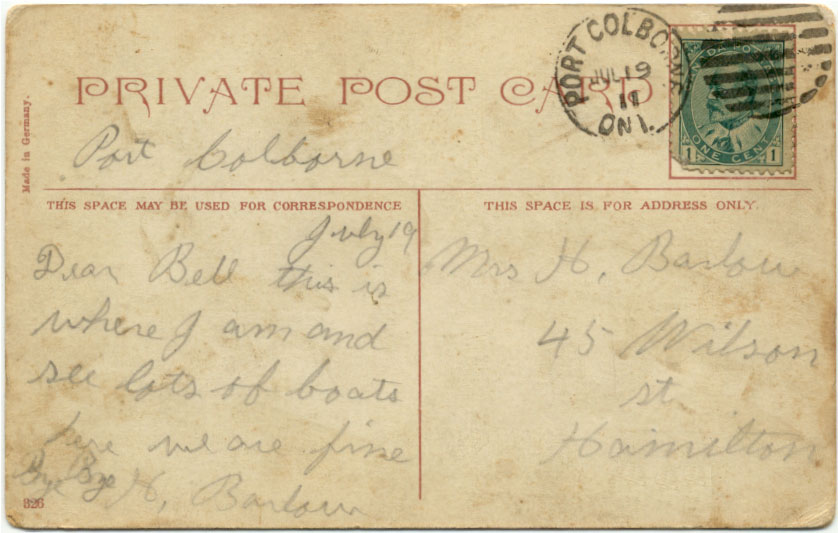 PRIVATE POST CARD
PORT COLBORNE
JUL 19
11
ONT.
CANADA POSTAGE
1 ONE CENT 1
Made in Germany.
Port Colborne
THIS SPACE MAY BE USED FOR CORRESPONDENCE
July 19
Dear Bell this is
where I am and
see lots of boats
here we are fine
Bye Bye
H, Barlow
326
THIS SPACE IS FOR ADDRESS ONLY.
Mrs H, Barlow
45 Wilson
st
Hamilton